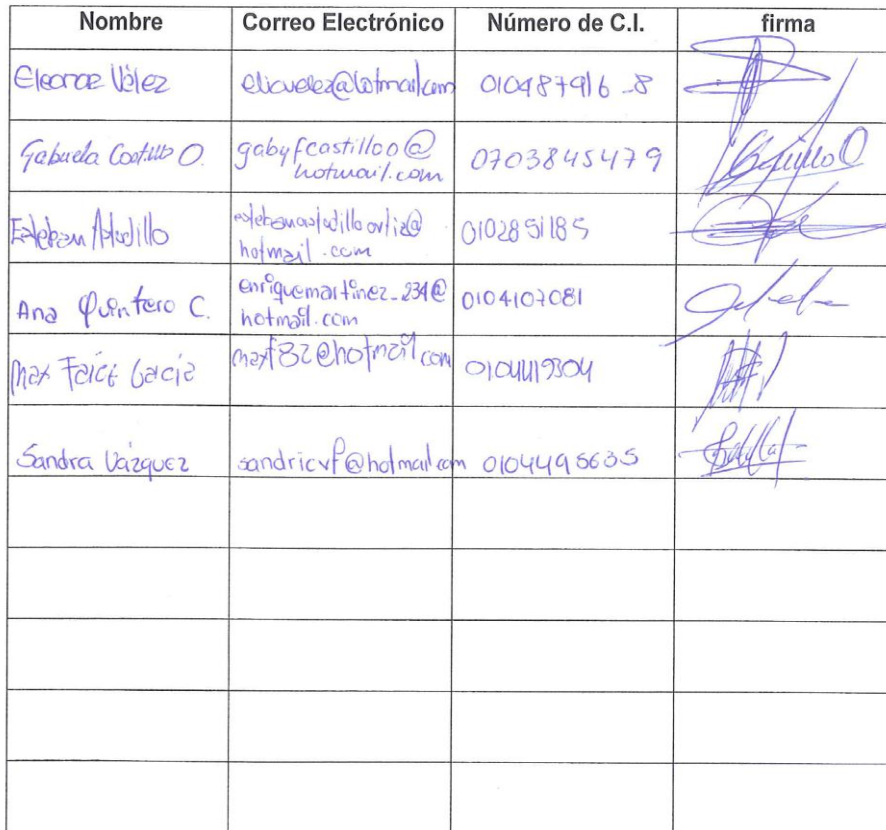 Nombre Correo Electrónico Número de C.I. firma
Eleonor Vélez elicvelez@hotmail.com 010487916-8
Gabriela Castillo O. gabyfcastilloo@
hotmail.com 0703845479
Esteban Astudillo estebanastudilloortiz@
hotmail.com 0102851185
Ana Quintero C. enriquemartinez_234@
hotmail.com 0104107081
Max Feicé García maxf82@hotmail.com 0104419304
Sandra Vázquez sandricvf@hotmail.com 0104495635